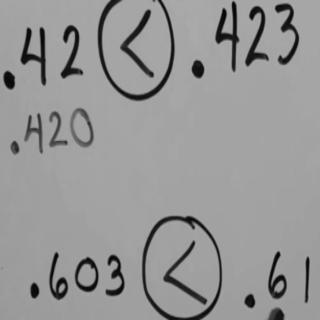 .42 < .423
.420
.603 < .61